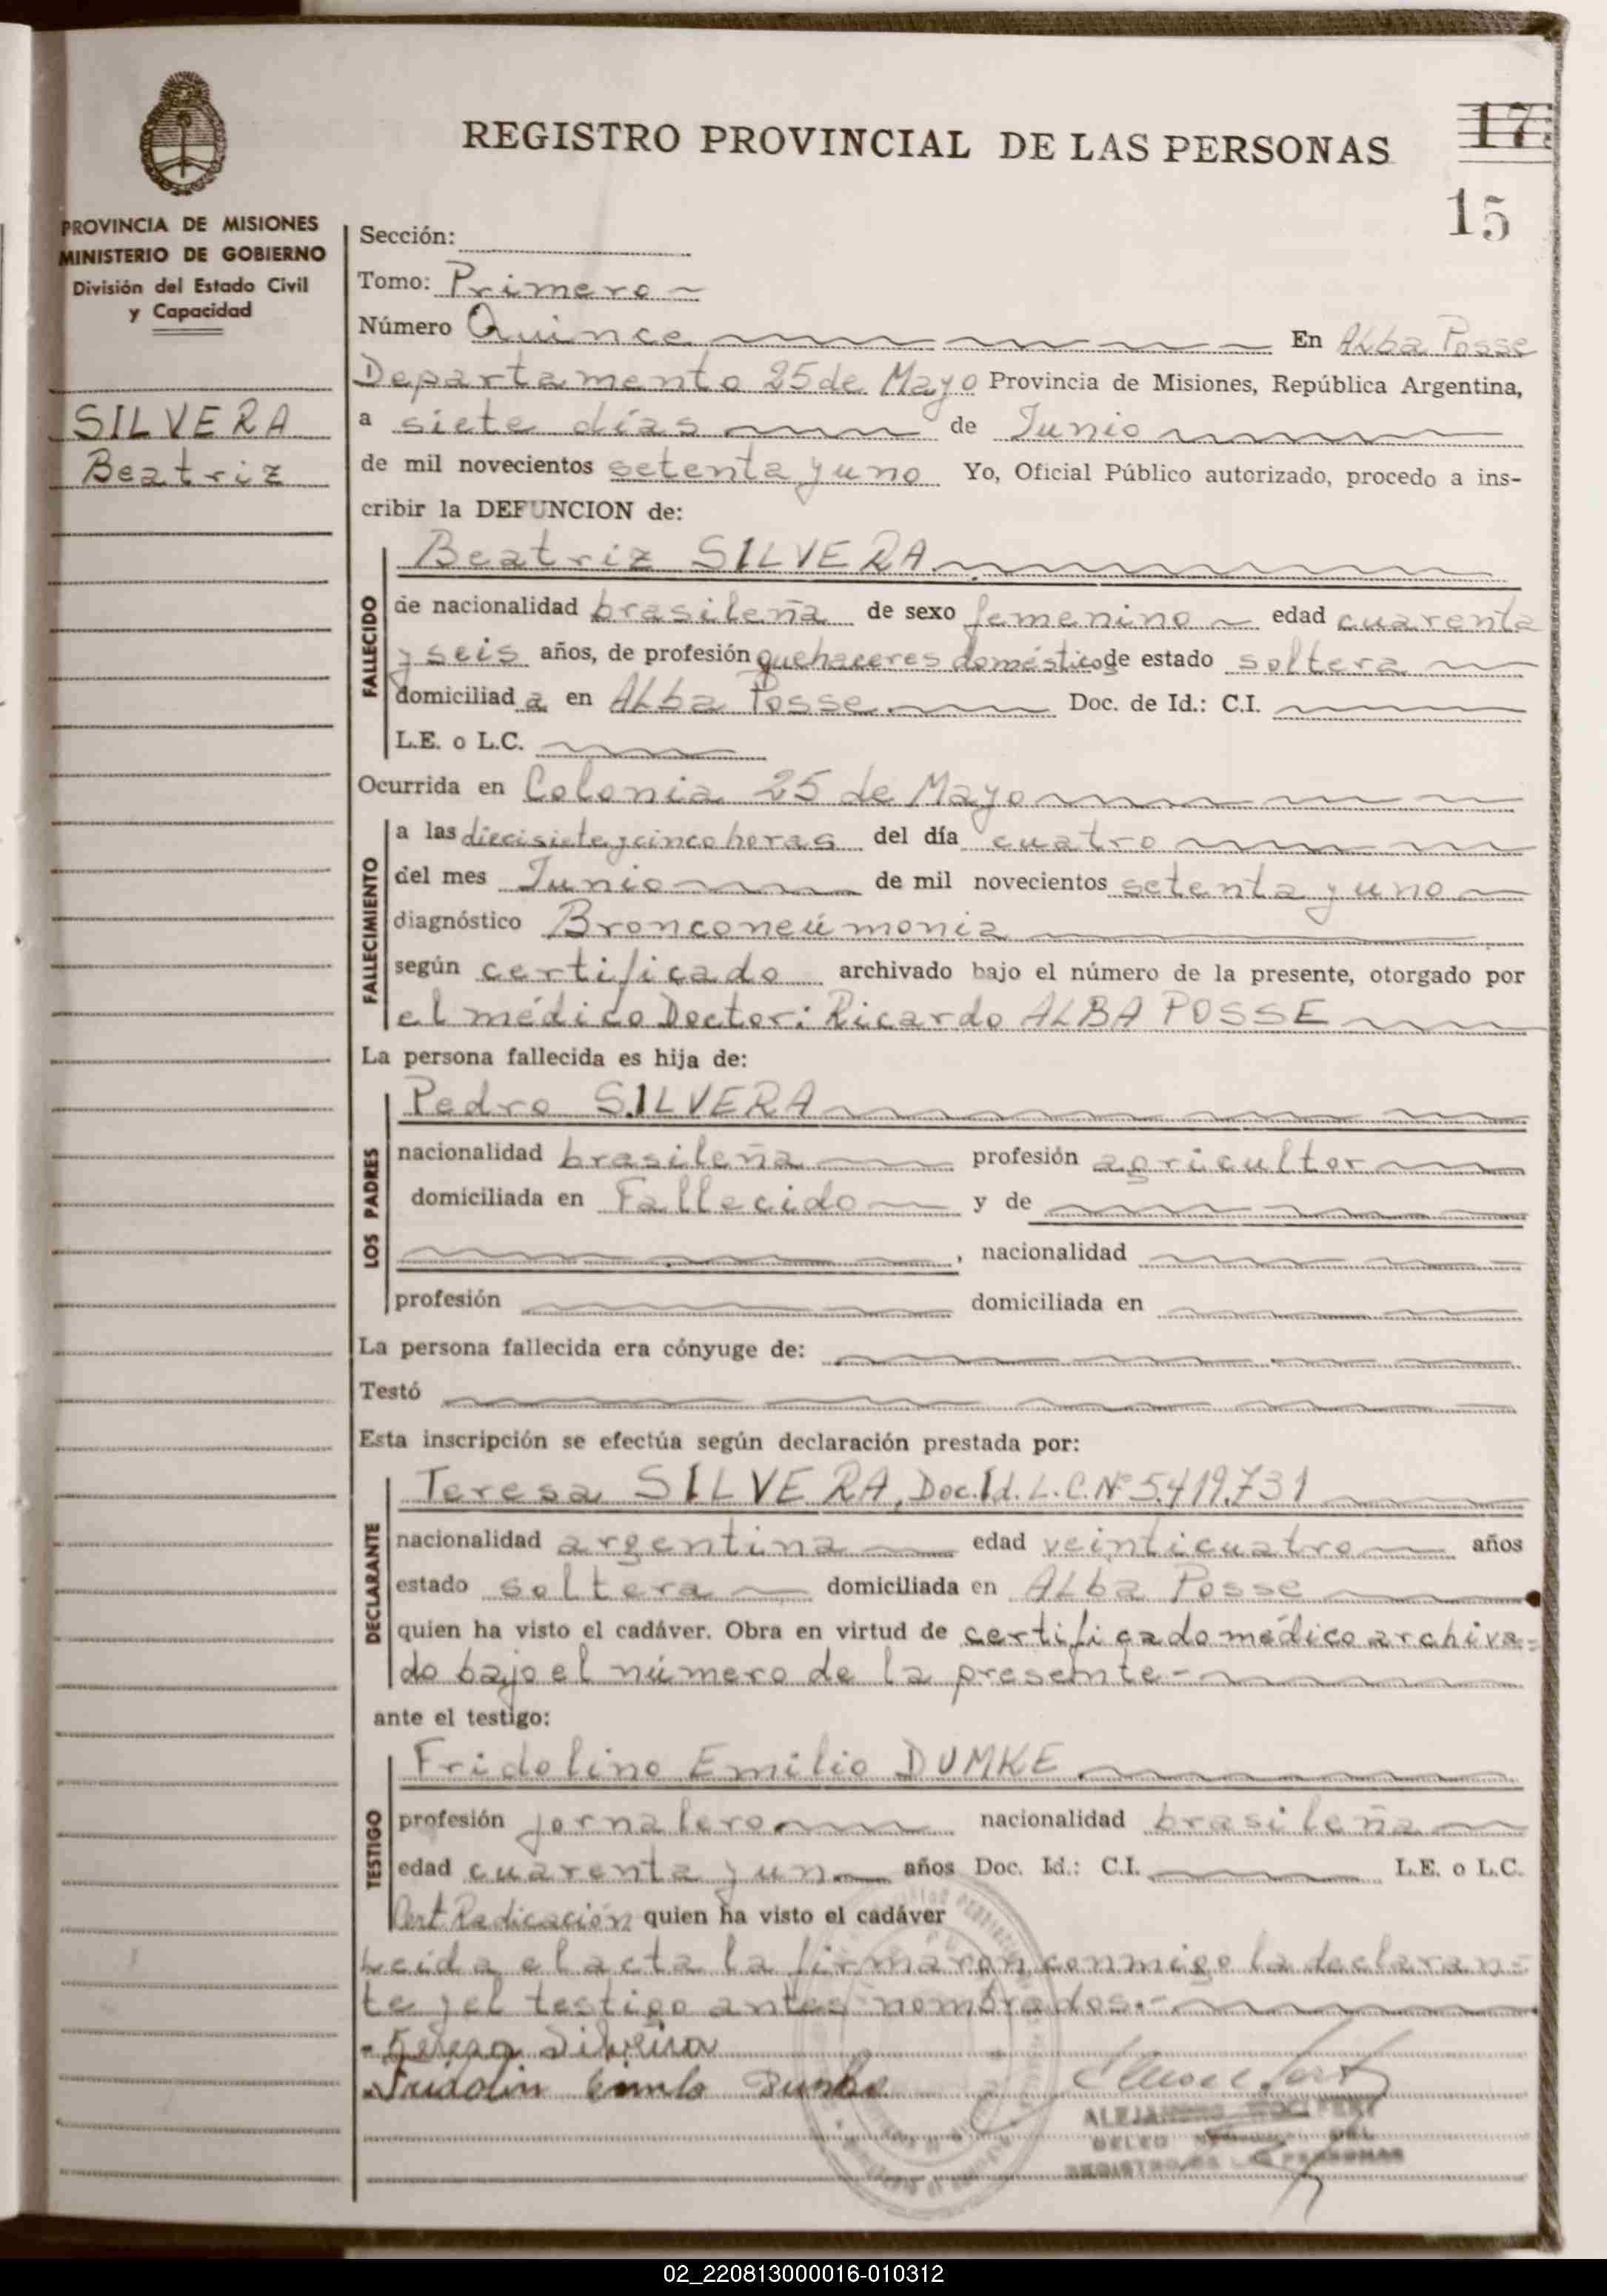 REGISTRO PROVINCIAL DE LAS PERSONAS
17
15
PROVINCIA DE MISIONES
MINISTERIO DE GOBIERNO
División del Estado Civil
y Capacidad
SILVERA
Beatriz
Sección:
Tomo: Primero
Número Quince En Alba Posse
Departamento 25 de Mayo Provincia de Misiones, República Argentina,
a siete días de Junio
de mil novecientos setenta y uno Yo, Oficial Público autorizado, procedo a ins-
cribir la DEFUNCION de:
FALLECIDO
Beatriz SILVERA
de nacionalidad brasileña de sexo femenino edad cuarenta
y seis años, de profesión quehaceres domésticos de estado soltera
domiciliad a en Alba Posse Doc. de Id.: C.I.
L.E. o L.C.
Ocurrida en Colonia 25 de Mayo
FALLECIMIENTO
a las diecisiete y cinco horas del día cuatro
del mes Junio de mil novecientos setenta y uno
diagnóstico Bronconeúmonia
según certificado archivado bajo el número de la presente, otorgado por
el médico Doctor: Ricardo ALBA POSSE
La persona fallecida es hija de:
LOS PADRES
Pedro SILVERA
nacionalidad brasileña profesión agricultor
domiciliada en Fallecido y de
, nacionalidad
profesión domiciliada en
La persona fallecida era cónyuge de:
Testó
Esta inscripción se efectúa según declaración prestada por:
DECLARANTE
Teresa SILVERA, Doc.Id. L.C.Nº 5.419.731
nacionalidad argentina edad veinticuatro años
estado soltera domiciliada en Alba Posse
quien ha visto el cadáver. Obra en virtud de certificado médico archiva=
do bajo el número de la presente-
ante el testigo:
TESTIGO
Fridolino Emilio DUMKE
profesión jornalero nacionalidad brasileña
edad cuarenta y un años Doc. Id.: C.I. L.E. o L.C.
Cert Radicación quien ha visto el cadáver
Leida el acta la firmaron conmigo la declaran=
te y el testigo antes nombrados.-
Teresa Silveira
Fridolin Emilo Dumke
ALEJANDRO
REGISTRO DE LAS PERSONAS
02_220813000016-010312